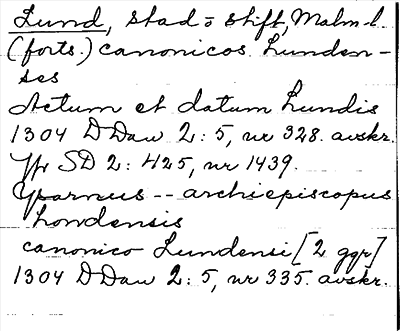 Lund, stad o stift, Malm. l.
(forts.) canonicos Lunden-
ses
Actum et datum Lundis
1304 D Dan 2:5, nr 328. avskr.
Jfr SD 2: 425, nr 1439.
Ysarnus -- archiepiscopus
Londensis
canonico Lundensi [2 ggr]
1304 D Dan 2:5, nr 335. avskr.